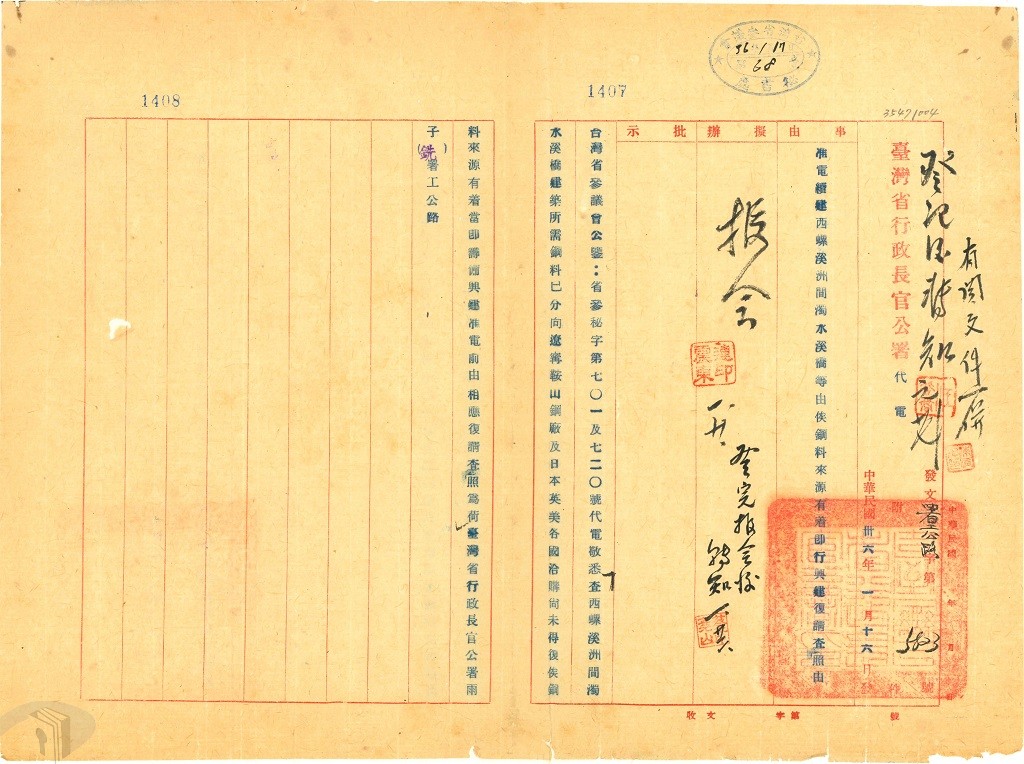 1408
1407
36 1 17
68
3547/004
有関文件一併
臺灣省行政長官公署代電
發文署工公路字第5603號
中華民國卅六年一月十六日發
附件
事由
擬辦
批示
准電續建西螺溪洲間濁水溪橋等由俟鋼料來源有着即行興建復請查照由
報会
台灣省參議會公鑒：省參秘字第七〇一及七二〇號代電敬悉查西螺溪洲間濁
水溪橋建築所需鋼料已分向遼寧鞍山鋼廠及日本英美各國洽購尚未得復俟鋼
料來源有着當即籌劃興建准電前由相應復請查照為荷臺灣省行政長官公署雨
子(銑)署工公路
收文 字第 號